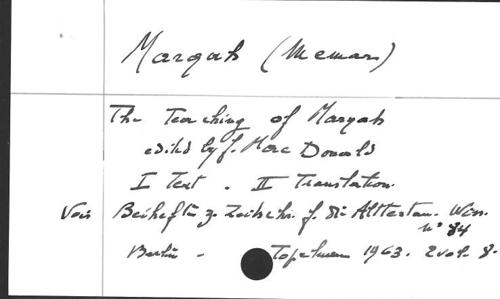 Marqah (Memar)
The Teaching of Marqah
edited by J. Mac Donald
I Text. II Translation.
Voir Beihefte z. Zeitschr. f. die Alttestam. Wiss.
n° 84
Berlin - Topelmann 1963. 2 vol. 8-